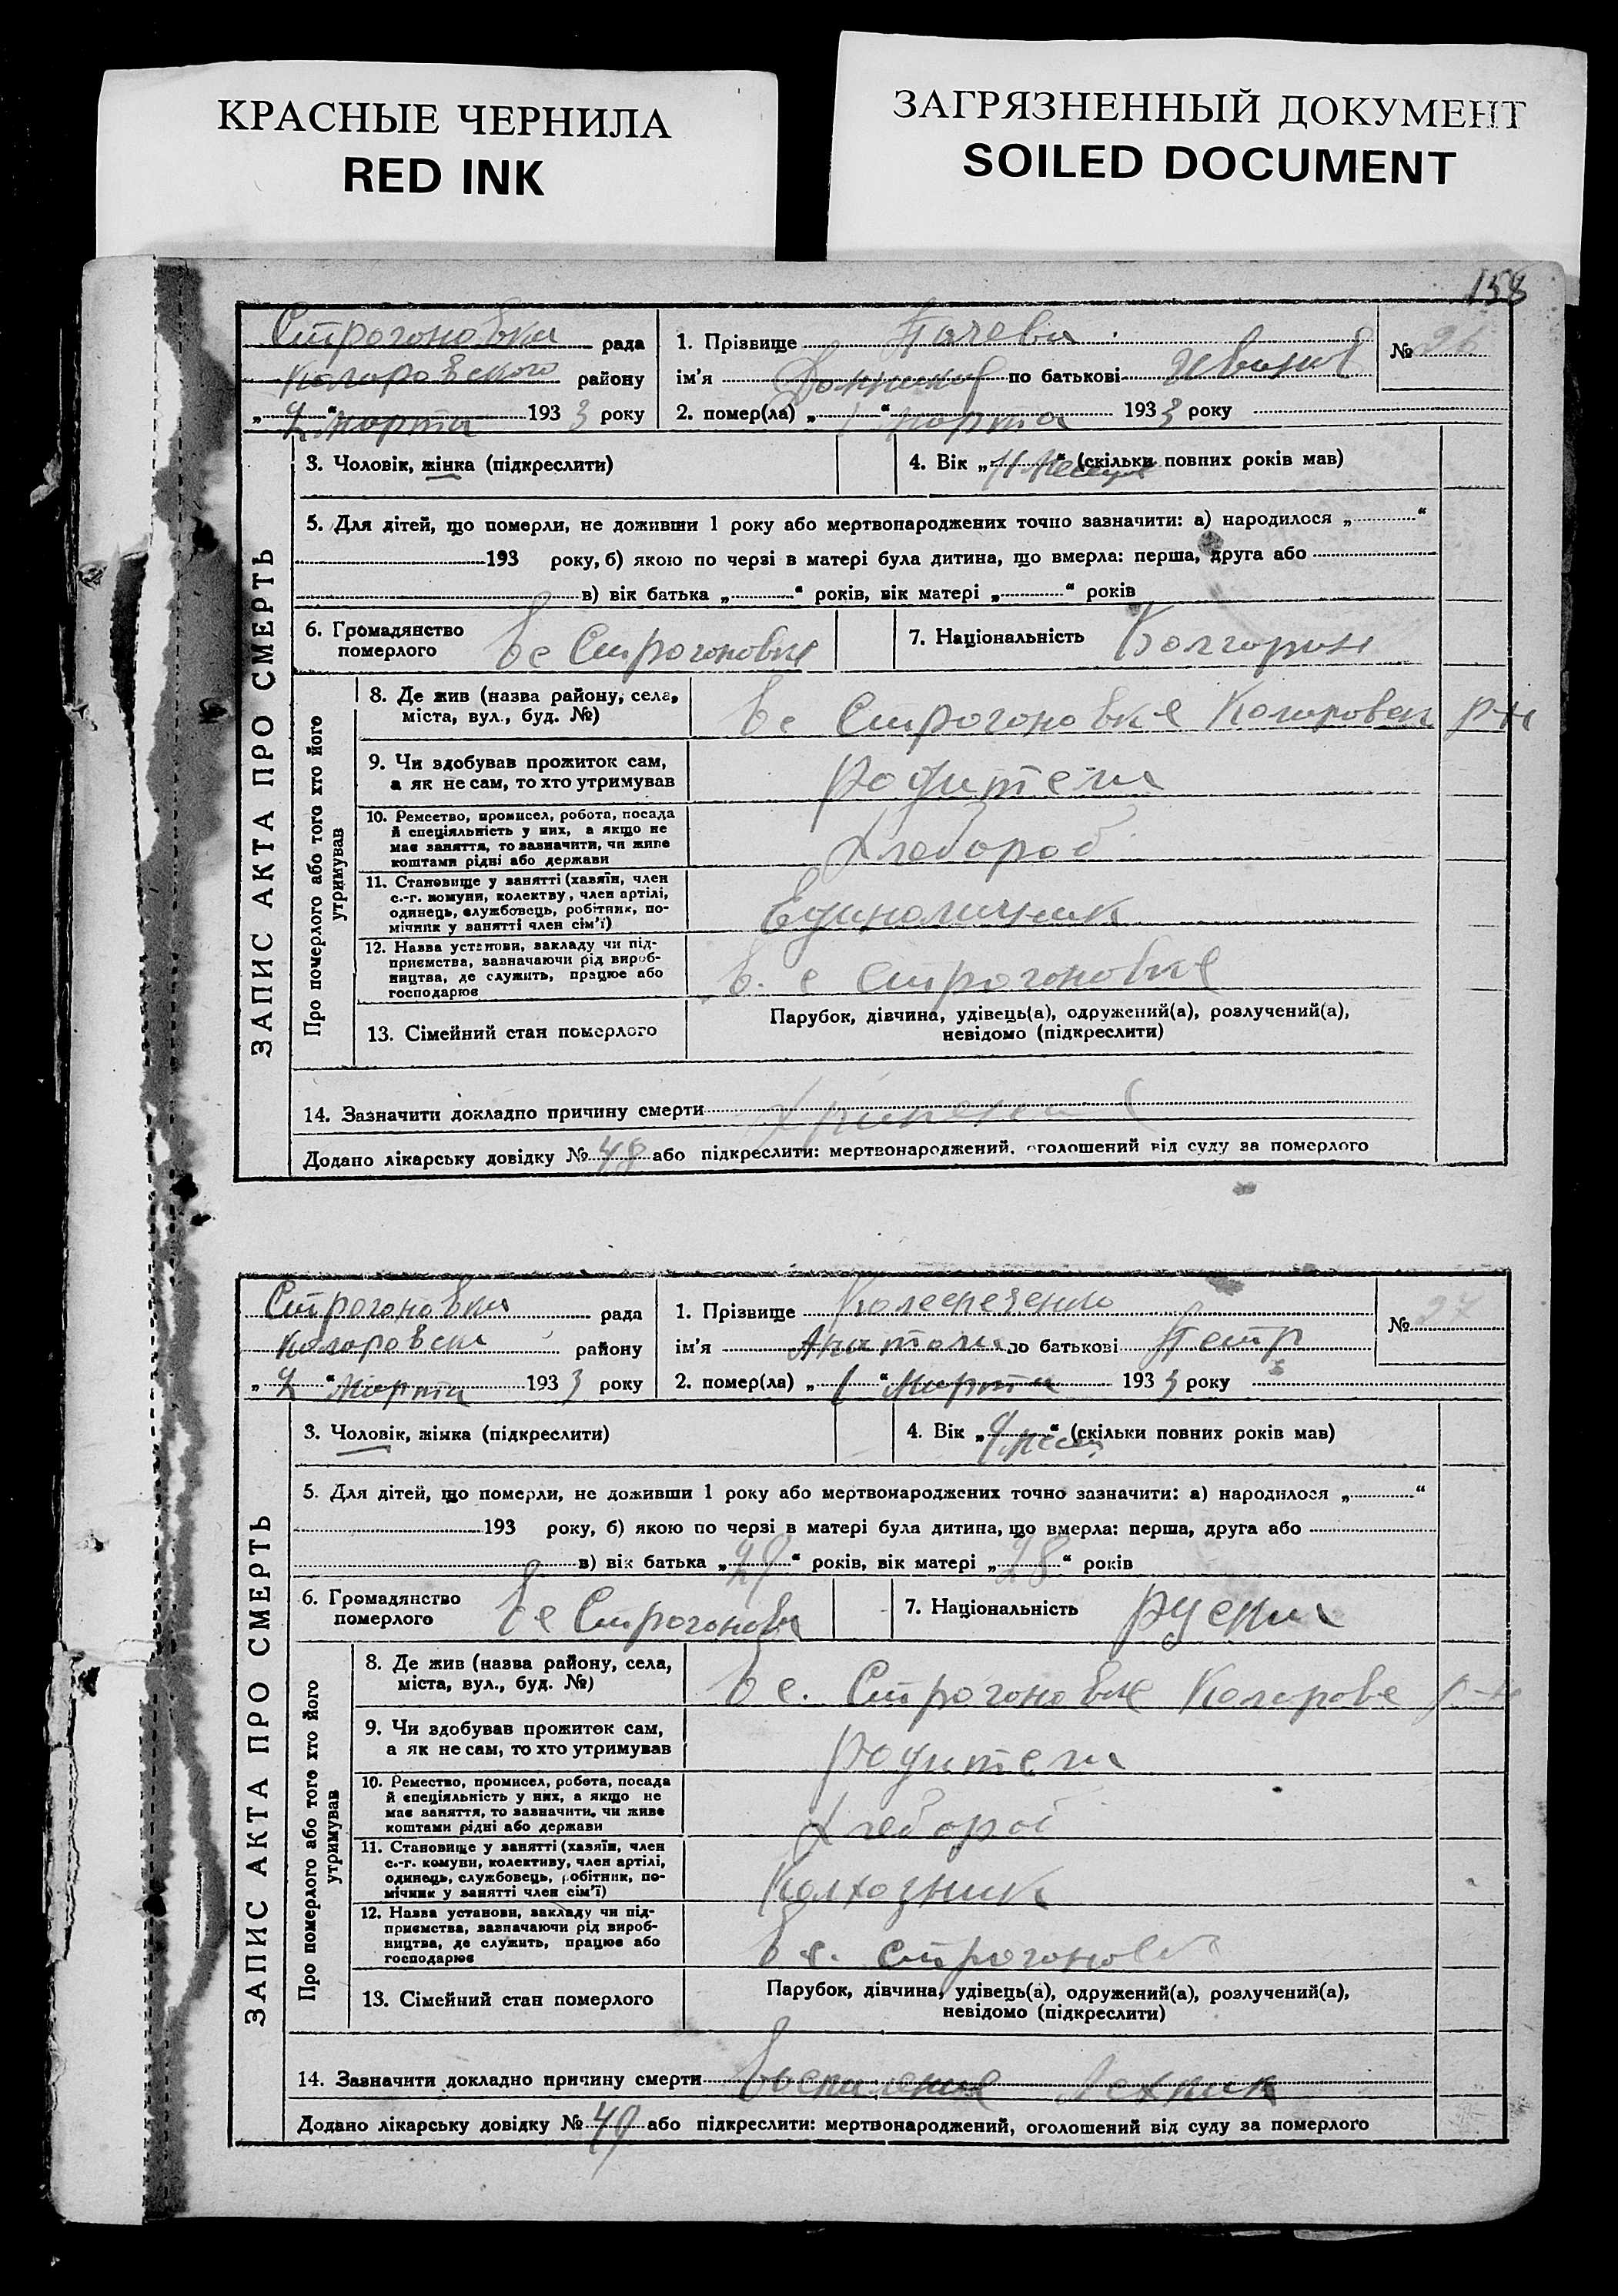 КРАСНЫЕ ЧЕРНИЛА
RED INK
ЗАГРЯЗНЕННЫЙ ДОКУМЕНТ
SOILED DOCUMENT
158
ЗАПИС АКТА ПРО СМЕРТЬ
Строгоновка рада
Коларовского району
„2“ марта 1933 року
1. Прізвище
№ 26
ім'я по батькові Иванов
2. помер(ла) „1“ марта 1933 року
3. Чоловік, жінка (підкреслити)
4. Вік „11 месяце“ (скільки повних років мав)
5. Для дітей, що померли, не доживши 1 року або мертвонароджених точно зазначити: а) народилося „ “
193 року, б) якою по черзі в матері була дитина, що вмерла: перша, друга або
в) вік батька „ “ років, вік матері „ “ років
6. Громадянство
померлого
в с Строгоновке
7. Національність Болгарин
Про померлого або того хто його
утримував
8. Де жив (назва району, села,
міста, вул., буд. №)
в с Строгоновке Коларовск р-н
9. Чи здобував прожиток сам,
а як не сам, то хто утримував
родители
10. Ремество, промисел, робота, посада
й спеціяльність у них, а якщо не
має заняття, то зазначити, чи живе
коштами рідні або держави
Хлебороб
11. Становище у занятті (хазяїн, член
с.-г. комуни, колективу, член артілі,
одинець, службовець, робітник, по-
мічник у занятті член сім'ї)
Единоличник
12. Назва установи, закладу чи під-
приємства, зазначаючи рід вироб-
ництва, де служить, працює або
господарює
в. с Строгоновке
13. Сімейний стан померлого
Парубок, дівчина, удівець(а), одружений(а), розлучений(а),
невідомо (підкреслити)
14. Зазначити докладно причину смерти
Додано лікарську довідку № 48 або підкреслити: мертвонароджений, оголошений від суду за померлого
ЗАПИС АКТА ПРО СМЕРТЬ
Строгоновка рада
Коларовски району
„2“ Марта 1933 року
1. Прізвище
№ 27
ім'я Анатоли по батькові Петр
2. помер(ла) „1“ Марта 1933 року
3. Чоловік, жінка (підкреслити)
4. Вік „9 месец“ (скільки повних років мав)
5. Для дітей, що померли, не доживши 1 року або мертвонароджених точно зазначити: а) народилося „ “
193 року, б) якою по черзі в матері була дитина, що вмерла: перша, друга або
в) вік батька „29“ років, вік матері „28“ років
6. Громадянство
померлого
в с Строгонов
7. Національність
Про померлого або того хто його
утримував
8. Де жив (назва району, села,
міста, вул., буд. №)
в с. Строгоновке Коларовс р-н
9. Чи здобував прожиток сам,
а як не сам, то хто утримував
родители
10. Ремество, промисел, робота, посада
й спеціяльність у них, а якщо не
має заняття, то зазначити, чи живе
коштами рідні або держави
Хлебороб
11. Становище у занятті (хазяїн, член
с.-г. комуни, колективу, член артілі,
одинець, службовець, робітник, по-
мічник у занятті член сім'ї)
Колхозник
12. Назва установи, закладу чи під-
приємства, зазначаючи рід вироб-
ництва, де служить, працює або
господарює
в с. Строгонов
13. Сімейний стан померлого
Парубок, дівчина, удівець(а), одружений(а), розлучений(а),
невідомо (підкреслити)
14. Зазначити докладно причину смерти
Додано лікарську довідку № 49 або підкреслити: мертвонароджений, оголошений від суду за померлого